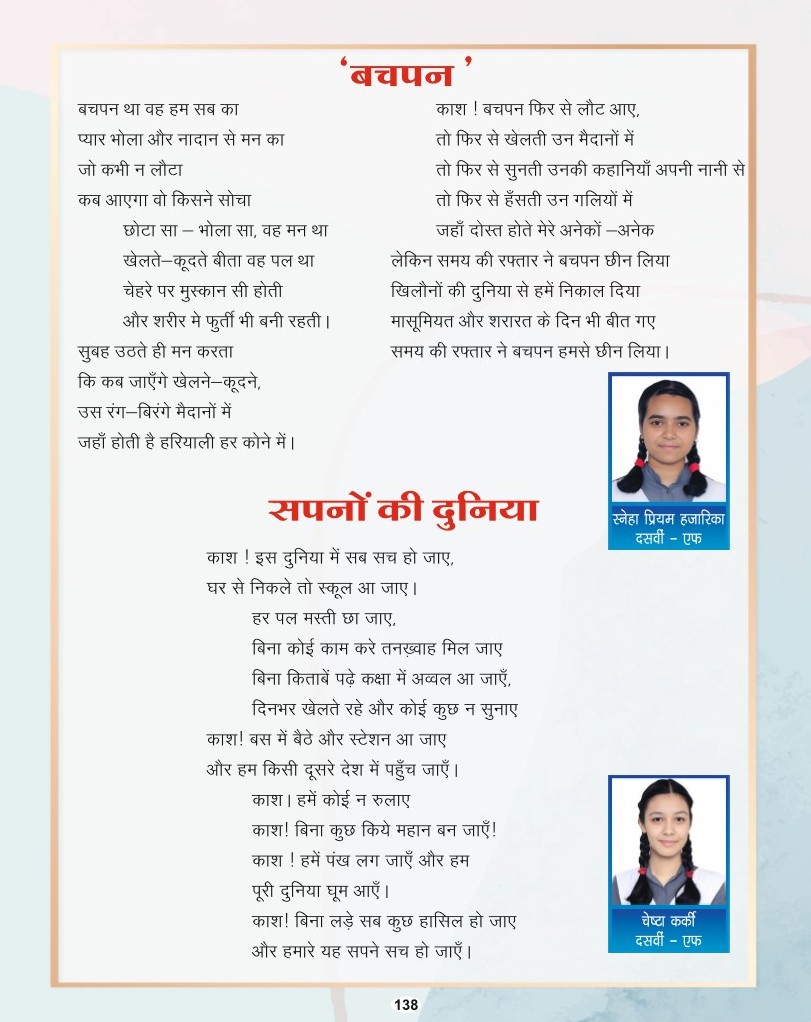 ‘बचपन ’
बचपन था वह हम सब का
प्यार भोला और नादान से मन का
जो कभी न लौटा
कब आएगा वो किसने सोचा
छोटा सा – भोला सा, वह मन था
खेलते–कूदते बीता वह पल था
चेहरे पर मुस्कान सी होती
और शरीर मे फुर्ती भी बनी रहती।
सुबह उठते ही मन करता
कि कब जाएँगे खेलने–कूदने,
उस रंग–बिरंगे मैदानों में
जहाँ होती है हरियाली हर कोने में।
काश ! बचपन फिर से लौट आए,
तो फिर से खेलती उन मैदानों में
तो फिर से सुनती उनकी कहानियाँ अपनी नानी से
तो फिर से हँसती उन गलियों में
जहाँ दोस्त होते मेरे अनेकों –अनेक
लेकिन समय की रफ्तार ने बचपन छीन लिया
खिलौनों की दुनिया से हमें निकाल दिया
मासूमियत और शरारत के दिन भी बीत गए
समय की रफ्तार ने बचपन हमसे छीन लिया।
स्नेहा प्रियम हजारिका
दसवीं - एफ
सपनों की दुनिया
काश ! इस दुनिया में सब सच हो जाए,
घर से निकले तो स्कूल आ जाए।
हर पल मस्ती छा जाए,
बिना कोई काम करे तनख़्वाह मिल जाए
बिना किताबें पढ़े कक्षा में अव्वल आ जाएँ,
दिनभर खेलते रहे और कोई कुछ न सुनाए
काश! बस में बैठे और स्टेशन आ जाए
और हम किसी दूसरे देश में पहुँच जाएँ।
काश। हमें कोई न रुलाए
काश! बिना कुछ किये महान बन जाएँ!
काश ! हमें पंख लग जाएँ और हम
पूरी दुनिया घूम आएँ।
काश! बिना लड़े सब कुछ हासिल हो जाए
और हमारे यह सपने सच हो जाएँ।
चेष्टा कर्की
दसवीं - एफ
138